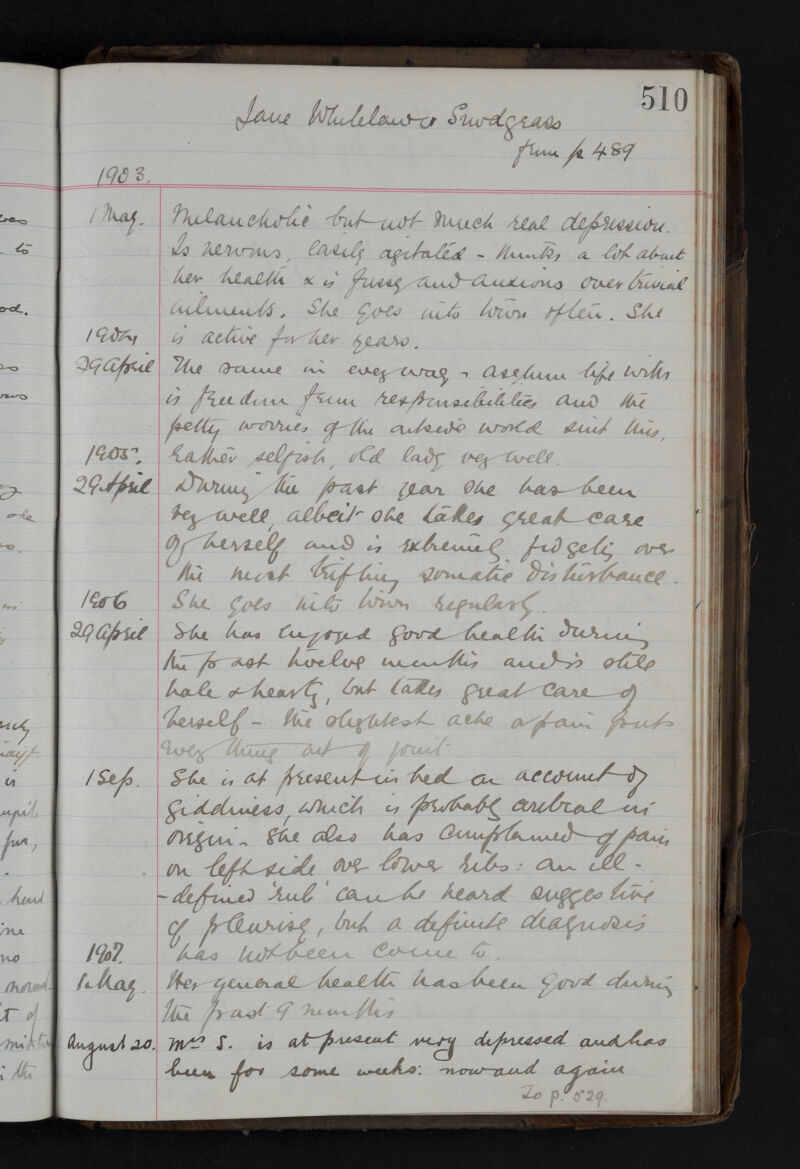 510
Jane Whitelaw or Snodgrass
from p 489
1903.
1 May. Melancholic but not much real depression.
Is nervous, easily agitated - thinks a lot about
her health & is fussy and anxious over trivial
ailments. She goes into town often. She
1904 is active for her years.
29 April The same in every way - asylum life with
is freedom from responsibilities and the
petty worries of the outside world suit this,
1905. rather selfish, old lady very well.
29 April During the past year she has been
very well, albeit she takes great care
of herself and is extremely fidgety over
the most trifling somatic disturbance.
1906 She goes into town regularly.
29 April She has enjoyed good health during
the past twelve months and is still
hale & hearty, but takes great care of
herself - the slightest ache or pain puts
every thing out of joint.
1 Sep. She is at present in bed on account of
giddiness, which is probably cerebral in
origin. She also has complained of pain
on left side over lower ribs: an ill-
-defined 'rub' can be heard suggestive
of pleurisy, but a definite diagnosis
1907. has not been come to.
1 May. Her general health has been good during
the past 9 months
August 20. Mrs S. is at present very depressed and has
been for some weeks: now and again
To p. 529.
ves
to
od.
she
is
heard
no
normal
t of
the